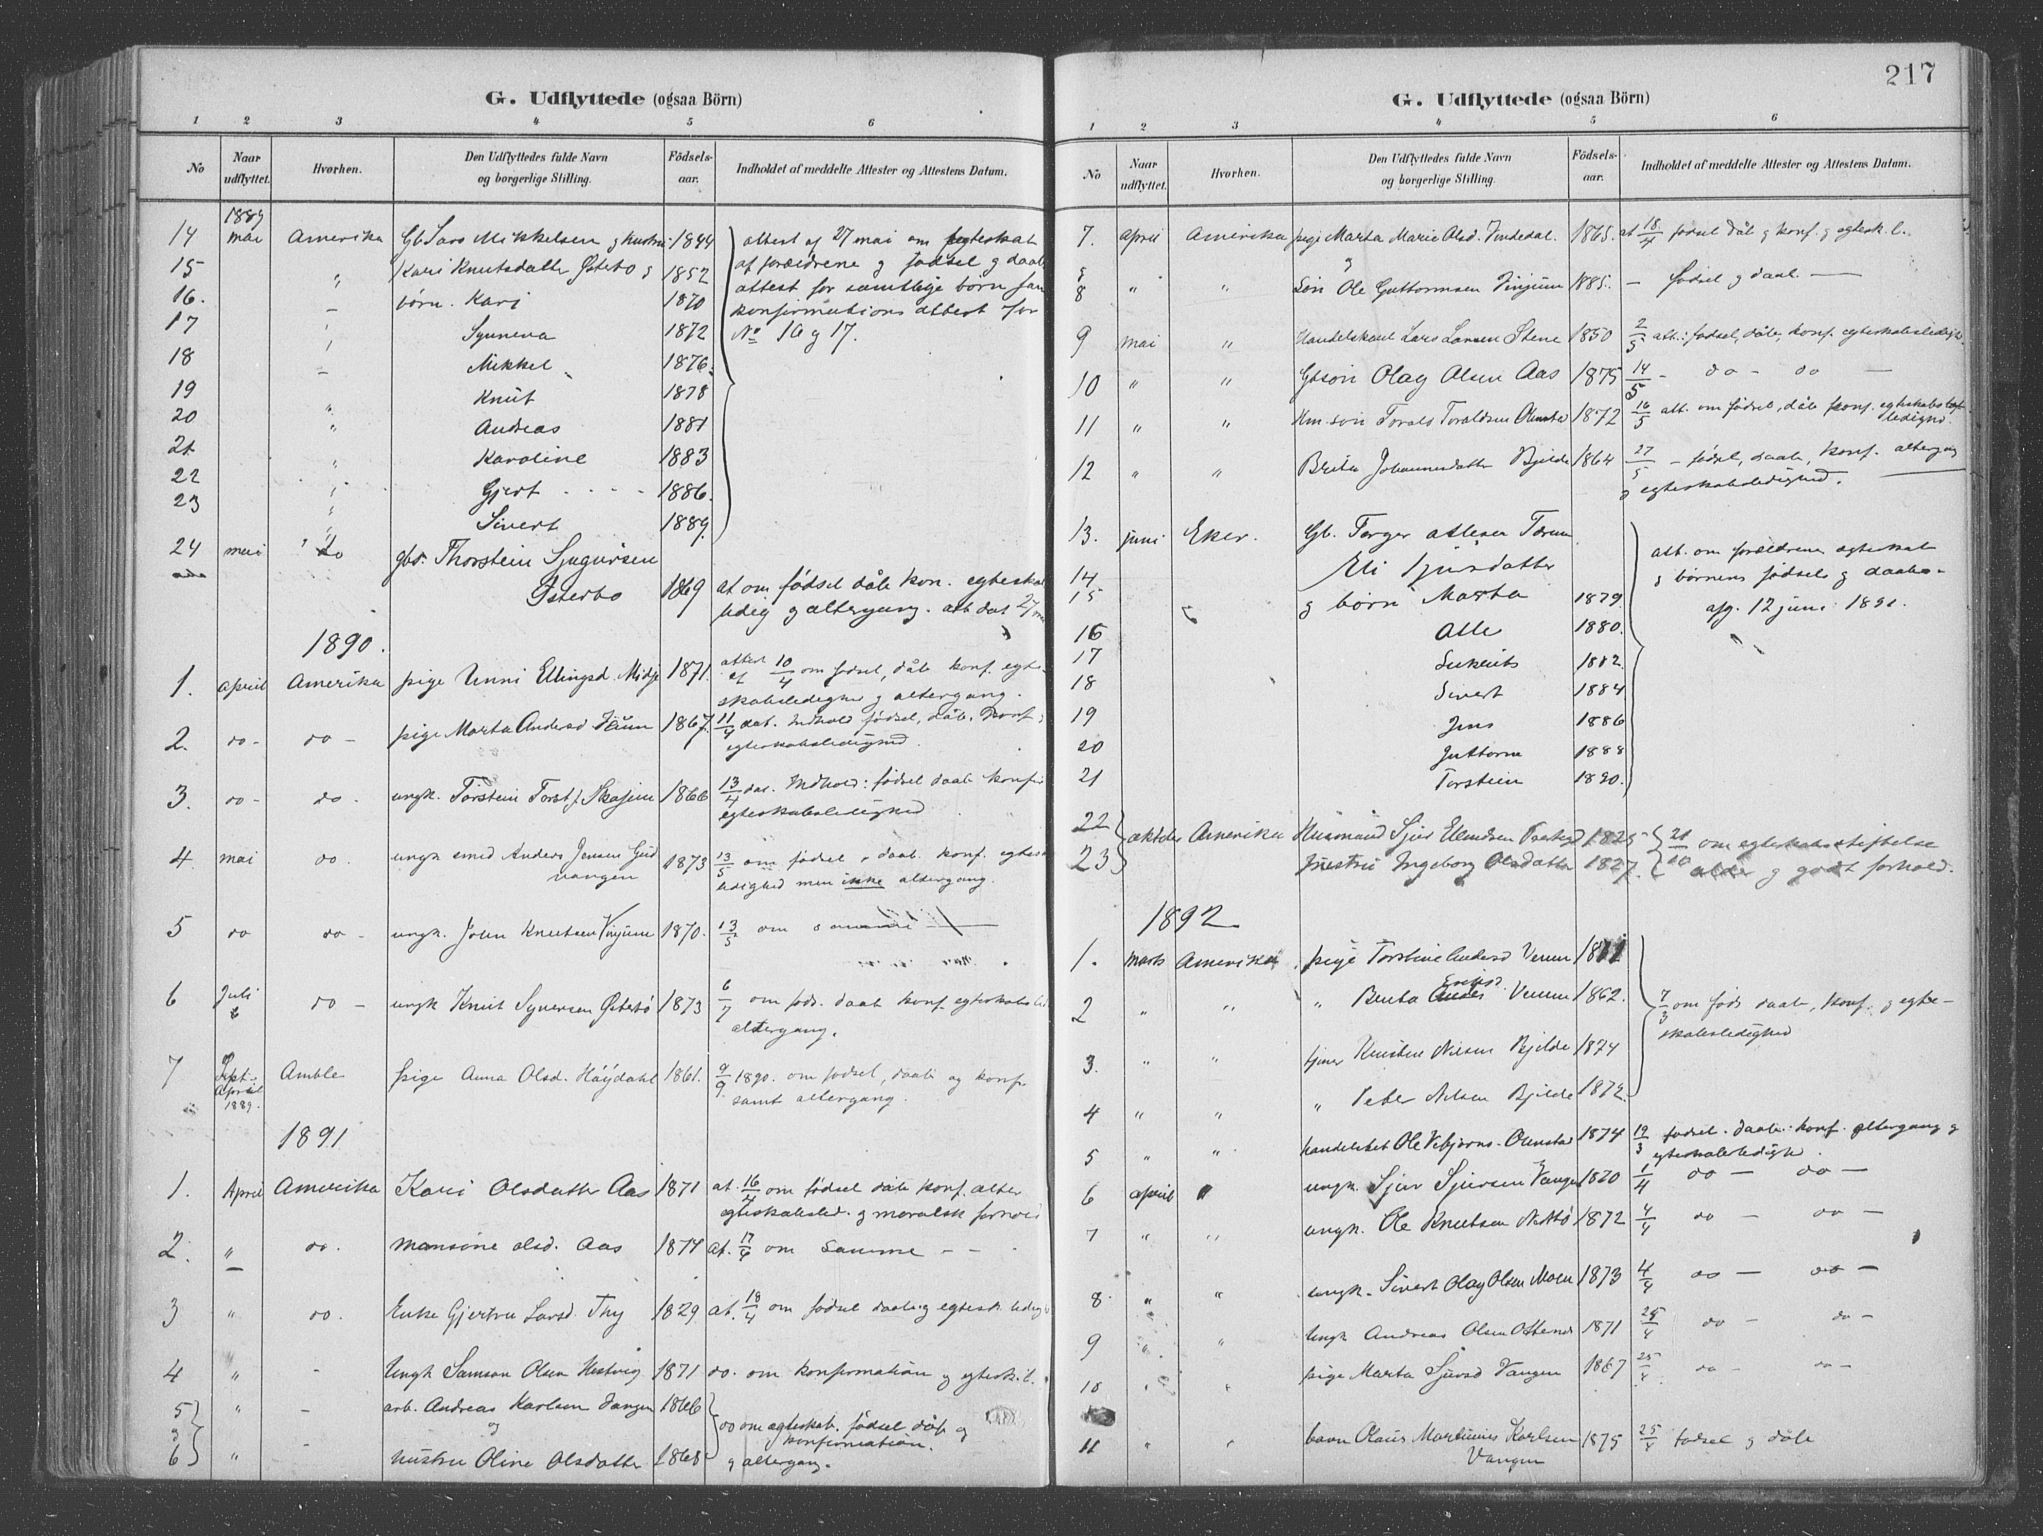 G. Udflyttede (ogsaa Börn)
1 2 3 4 5 6
No
Naar udflyttet.
Hvorhen.
Den Udflyttedes fulde Navn og borgerlige Stilling.
Födselsaar.
Indholdet af meddelte Attester og Attestens Datum.
1889
14 mai Amerika Gb Lars Mikkelsen g hustru 1844 attest af 27 mai om egteskab
15 " Kari Knutsdatter Østebø g 1852 af forældrene g födsel g daab
16. – børn. Kari 1870 attest for samtlige börn
17 " Synneva 1872 konfirmations attest for
18 – Mikkel 1876. No 16 g 17.
19 Knut 1878
20 " Andreas 1881
21 " Karoline 1883
22 " Gjert 1886.
23 " Sivert 1889.
24 mai do gbs. Thorstein Sjugursen
Østerbo 1869 at om födsel dåb kon. egteskab
ledig g altergang. att dat 27 mai
1890.
1. april Amerika pige Unni Ellingsd. Midje 1871. attest af 10/4 om födsel, dåb konf. egte-
skabsledighed g altergang.
2. do - do - pige Marta Andersd 1867. 11/4 dat. Indhold födsel, dåb. Konf.
egteskabsledighed.
3. do - do - ungk. Torstein Torst. Skajem 1866 13/4 dat. Indhold: födsel daab konf
egteskabsledighed
4 mai do. ungk smed Anders Jensen Gud
vangen 1873 13/5 om födsel, daab konf. egteska
ledighed men ikke altergang.
5 do do - ungk. John Knutsen Vinjum 1870. 13/5 om samme
6 Juli do - ungk Knut Syversen Østebø 1873 6/7 om föds. daab konf egteskabsled
altergang.
7 Sept.
April
1889. Amble pige Anna Olsd. Höydahl 1861. 9/9 1890. om födsel, daab og konf
samt altergang.
1891
1. April Amerika Kari Olsdatter Aas 1871 at. 16/4 om födsel dåb konf. alter
egteskabsled. g moralsk forhold
2. " do. Mansöne Olsd. Aas 1874 at. 17/4 om samme – –
3 " do. Enke Gjertru Larsd. Thy 1829 at. 18/4 om födsel daab g egtesk. ledig
4 " - Ungk Samson Olsen 1871 do. om konfirmation g egtesk. l.
5 " – arb. Andreas Karlsen Vangen 1866 do om egteskab. födsel dåb g
g og konfirmation.
6 " - hustru Oline Olsdatter 1868 g altergang.
217
G. Udflyttede (ogsaa Börn)
1 2 3 4 5 6
No
Naar udflyttet.
Hvorhen.
Den Udflyttedes fulde Navn og borgerlige Stilling.
Födselsaar.
Indholdet af meddelte Attester og Attestens Datum.
7. April Amerika pige Marta Marie Olsd. Vindedal. 1865. at 18/4 födsel dåb g konf. g egtesk. l.
g
8 " " Sön Ole Guttormsen Vinjum 1885. – födsel g daab –
9 mai " Handelskarl Lars Larsen Stene 1850 2/5 att: födsel, dåb, konf. egteskabsledighed.
10 " " Gbsön Olag Olsen Aas 1875 14/5 - do - do –
11 " " Hm. sön Torals Toraldsen 1872 16/5 att. om födsel, dåb konf. egteskabs
ledighed.
12 " " Brita Johannesdatter Bjelde 1864 27/5 – födsel, daab, konf. altergang
g egteskabsledighed.
13. juni Eker. Gb. Torger Attesen
14 Eli Sjursdatter att. om forældrene egteskab
15 g børn Marta 1879 g börnens födsels g daabs-
16 Atle 1880. afg. 12 juni 1891.
17 1882.
18 Sivert 1884
19 Jens 1886
20 Guttorm 1888
21 Torstein 1890.
22 oktober Amerika Husmand Sjur 1825 21/10 om egteskabsstiftelse
23 hustru Ingeborg Olsdatter 1827. alder g godt forhold.
1892
1. Marts Amerika. pige Torstine Andersd Venum 1871
2 " " " Brita Eriksd. Venum 1862. 7/3 om föds daab, konf. g egte-
skabsledighed
3. " " tjener Knisten Nilsen Bjelde 1874
4 " " " Peter Nilsen Bjelde 1872.
5 " " handelsbet Ole Vibjörns. Ounstad 1874 19/3 födsel. daab. konf. altergang g
egteskabsledighed.
6 april " ungk. Sjur Sjursen Vangen 1870 1/4 do – do –
7 " " ungk. Ole Knutsen 1872 4/4 do – do –
8 " " ungk. Sivert Olag Olsen Moen 1873 4/4 do – do –
9 " " Ungk Andreas Olsen 1871 25/4 do – do –
10 " " pige Marta Sjursd Vangen 1867 25/4 do – do –
11 " " barn Olaus Martinius Karlsen
Vangen 1875 25/4 födsel g dåb